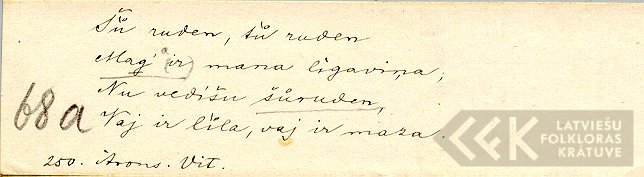 Šũ ruden, šũ ruden
Mag' (ir) mana līgaviņa;
Nu vedīšu šũruden,
Vaj ir līla, vaj ir maza.
68a
250. Ārons. Vit.
LATVIEŠU
FOLKLORAS
KRĀTUVE